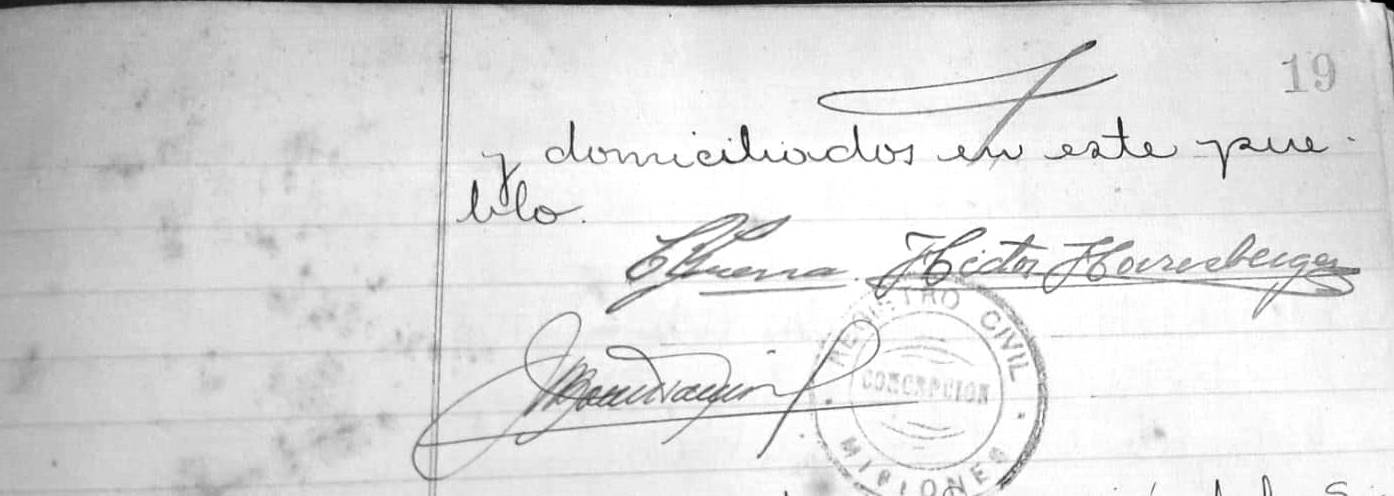 19
y domiciliados en este pue-
blo.
Guerra. Hector
REGISTRO CIVIL
CONCEPCION
MISIONES